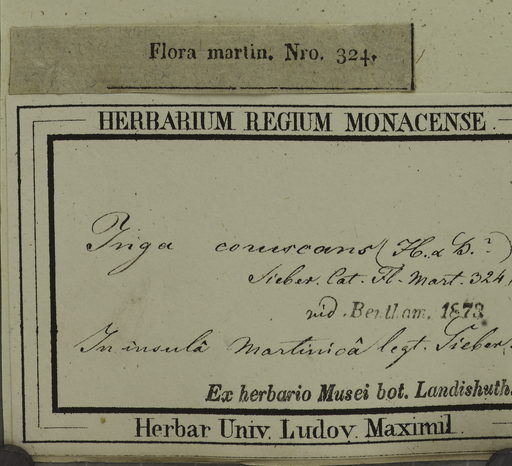 Flora martin. Nro. 324.
HERBARIUM REGIUM MONACENSE
Inga coruscans (H. & B.?)
Sieber. Cat. Fl. Mart. 324,
vid. Bentham. 1873
In insulâ Martinicâ legt. Sieber.
Ex herbario Musei bot. Landishuth.
Herbar Univ. Ludov. Maximil.